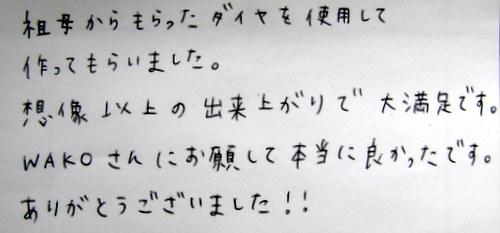 祖母からもらったダイヤを使用して
作ってもらいました。
想像以上の出来上がりで大満足です。
WAKOさんにお願して本当に良かったです。
ありがとうございました!!